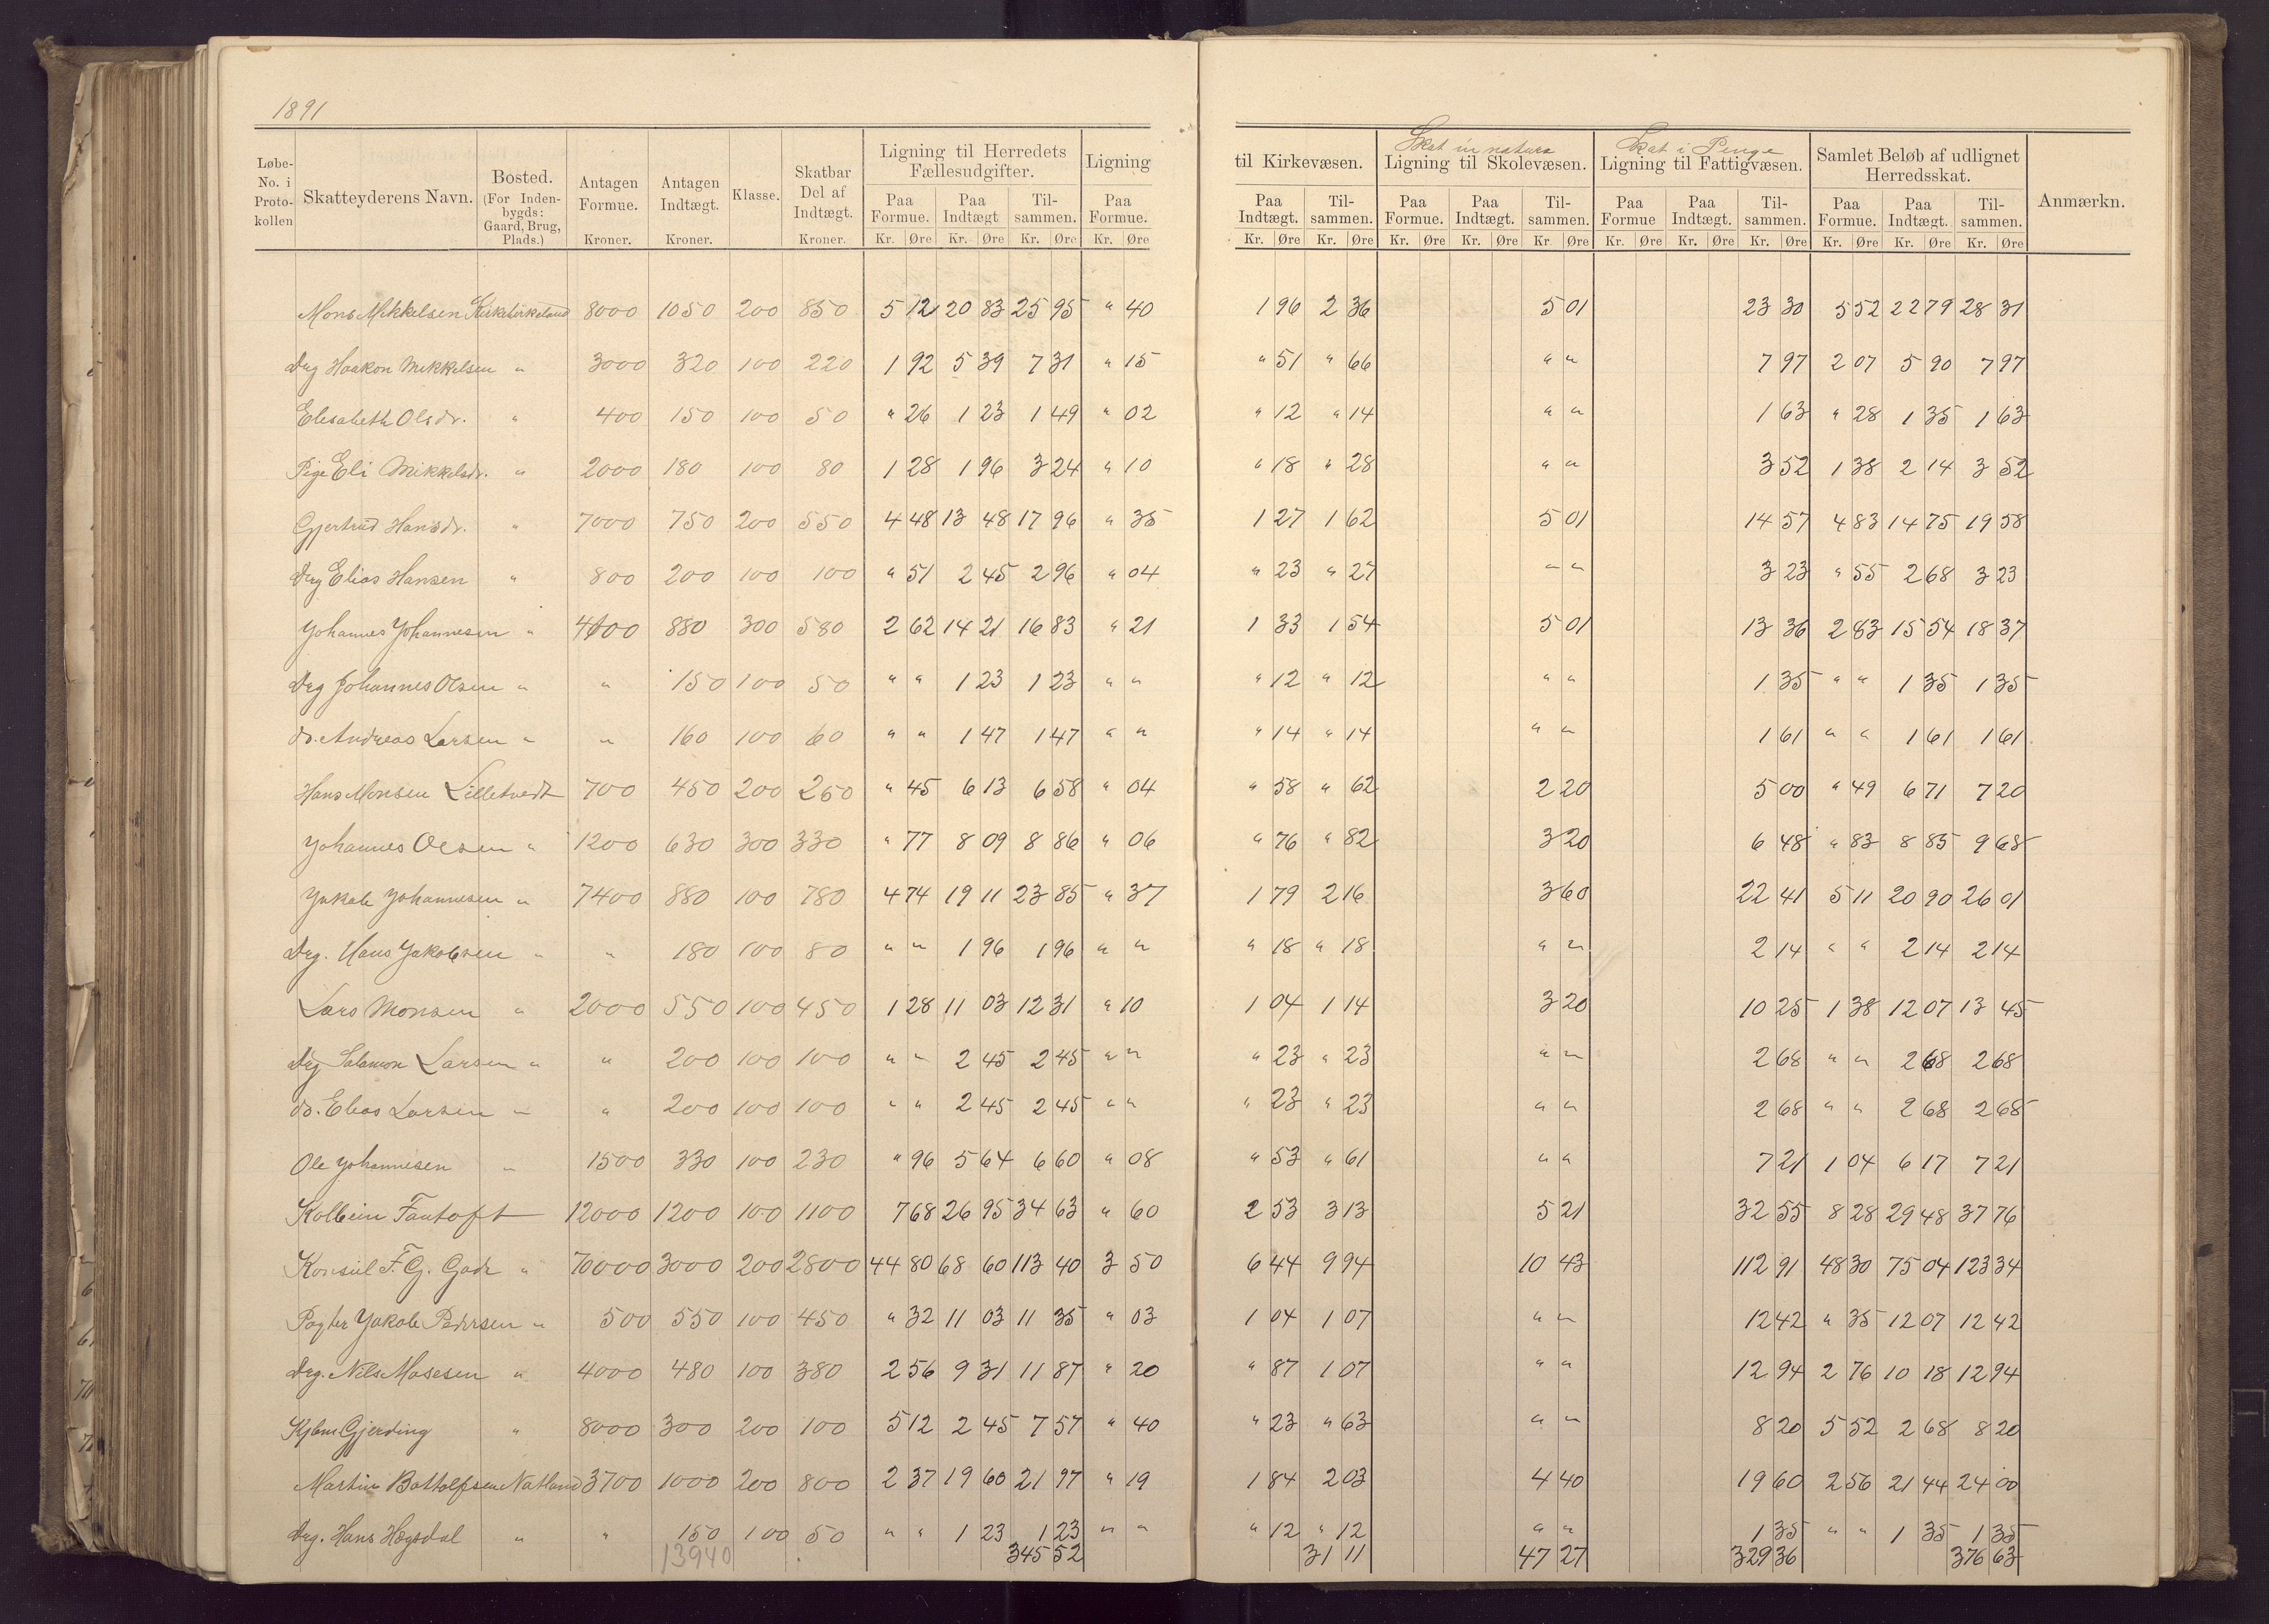 1891
Løbe-No. i Protokollen | Skatteyderens Navn. | Bosted. (For Indenbygds: Gaard, Brug, Plads.) | Antagen Formue. Kroner. | Antagen Indtægt. Kroner. | Klasse. | Skatbar Del af Indtægt. Kroner. | Ligning til Herredets Fællesudgifter. Paa Formue. Kr. Øre | Paa Indtægt Kr. Øre | Tilsammen. Kr. Øre | Ligning Paa Formue. Kr. Øre | til Kirkevæsen. Paa Indtægt. Kr. Øre | Tilsammen. Kr. Øre | Skat in natura Ligning til Skolevæsen. Paa Formue. Kr. Øre | Paa Indtægt. Kr. Øre | Tilsammen. Kr. Øre | Skat i Penge Ligning til Fattigvæsen. Paa Formue Kr. Øre | Paa Indtægt. Kr. Øre | Tilsammen. Kr. Øre | Samlet Beløb af udlignet Herredsskat. Paa Formue. Kr. Øre | Paa Indtægt. Kr. Øre | Tilsammen. Kr. Øre | Anmærkn.
Mons Mikkelsen Kirkebirkeland 8000 1050 200 850 5 12 20 83 25 95 " 40 1 96 2 36 5 01 23 30 5 52 22 79 28 31
Drg Haakon Mikkelsen " 3000 320 100 220 1 92 5 39 7 31 " 15 " 51 " 66 " " 7 97 2 07 5 90 7 97
Elesabeth Olsdr. " 400 150 100 50 " 26 1 23 1 49 " 02 " 12 " 14 " " 1 63 " 28 1 35 1 63
Pige Eli Mikkelsdr. " 2000 180 100 80 1 28 1 96 3 24 " 10 " 18 " 28 " " 3 52 1 38 2 14 3 52
Gjertrud Hansdr. " 7000 750 200 550 4 48 13 48 17 96 " 35 1 27 1 62 5 01 14 57 4 83 14 75 19 58
Drg Elias Hansen " 800 200 100 100 " 51 2 45 2 96 " 04 " 23 " 27 " " 3 23 " 55 2 68 3 23
Johannes Johannesen " 4100 880 300 580 2 62 14 21 16 83 " 21 1 33 1 54 5 01 13 36 2 83 15 54 18 37
Drg Johannes Olsen " " 150 100 50 " " 1 23 1 23 " " " 12 " 12 " " 1 35 " " 1 35 1 35
do. Andreas Larsen " " 160 100 60 " " 1 47 1 47 " " " 14 " 14 " " 1 61 " " 1 61 1 61
Hans Monsen Lilletvedt 700 450 200 250 " 45 6 13 6 58 " 04 " 58 " 62 2 20 5 00 " 49 6 71 7 20
Johannes Olsen " 1200 630 300 330 " 77 8 09 8 86 " 06 " 76 " 82 3 20 6 48 " 83 8 85 9 68
Jakob Johannesen " 7400 880 100 780 4 74 19 11 23 85 " 37 1 79 2 16 3 60 22 41 5 11 20 90 26 01
Drg. Hans Jakobsen " " 180 100 80 " " 1 96 1 96 " " " 18 " 18 " " 2 14 " " 2 14 2 14
Lars Monsen " 2000 550 100 450 1 28 11 03 12 31 " 10 1 04 1 14 3 20 10 25 1 38 12 07 13 45
Drg Salamon Larsen " " 200 100 100 " " 2 45 2 45 " " " 23 " 23 " " 2 68 " " 2 68 2 68
do. Elias Larsen " " 200 100 100 " " 2 45 2 45 " " " 23 " 23 " " 2 68 " " 2 68 2 68
Ole Johannesen " 1500 330 100 230 " 96 5 64 6 60 " 08 " 53 " 61 " " 7 21 1 04 6 17 7 21
Kolbein Fantoft 12000 1200 100 1100 7 68 26 95 34 63 " 60 2 53 3 13 5 21 32 55 8 28 29 48 37 76
Konsul F. G. Gade " 70000 3000 200 2800 44 80 68 60 113 40 3 50 6 44 9 94 10 43 112 91 48 30 75 04 123 34
Pagter Jakob Pedersen " 500 550 100 450 " 32 11 03 11 35 " 03 1 04 1 07 " " 12 42 " 35 12 07 12 42
Drg. Nils Mosesen " 4000 480 100 380 2 56 9 31 11 87 " 20 " 87 1 07 " " 12 94 2 76 10 18 12 94
Kjbm Gjerding " 8000 300 200 100 5 12 2 45 7 57 " 40 " 23 " 63 " " 8 20 5 52 2 68 8 20
Martin Bottolfsen Natland 3700 1000 200 800 2 37 19 60 21 97 " 19 1 84 2 03 4 40 19 60 2 56 21 44 24 00
Drg. Hans Høgsdal " " 150 100 50 " " 1 23 1 23 " " " 12 " 12 " " 1 35 " " 1 35 1 35
13940 345 52 31 11 47 27 329 36 376 63